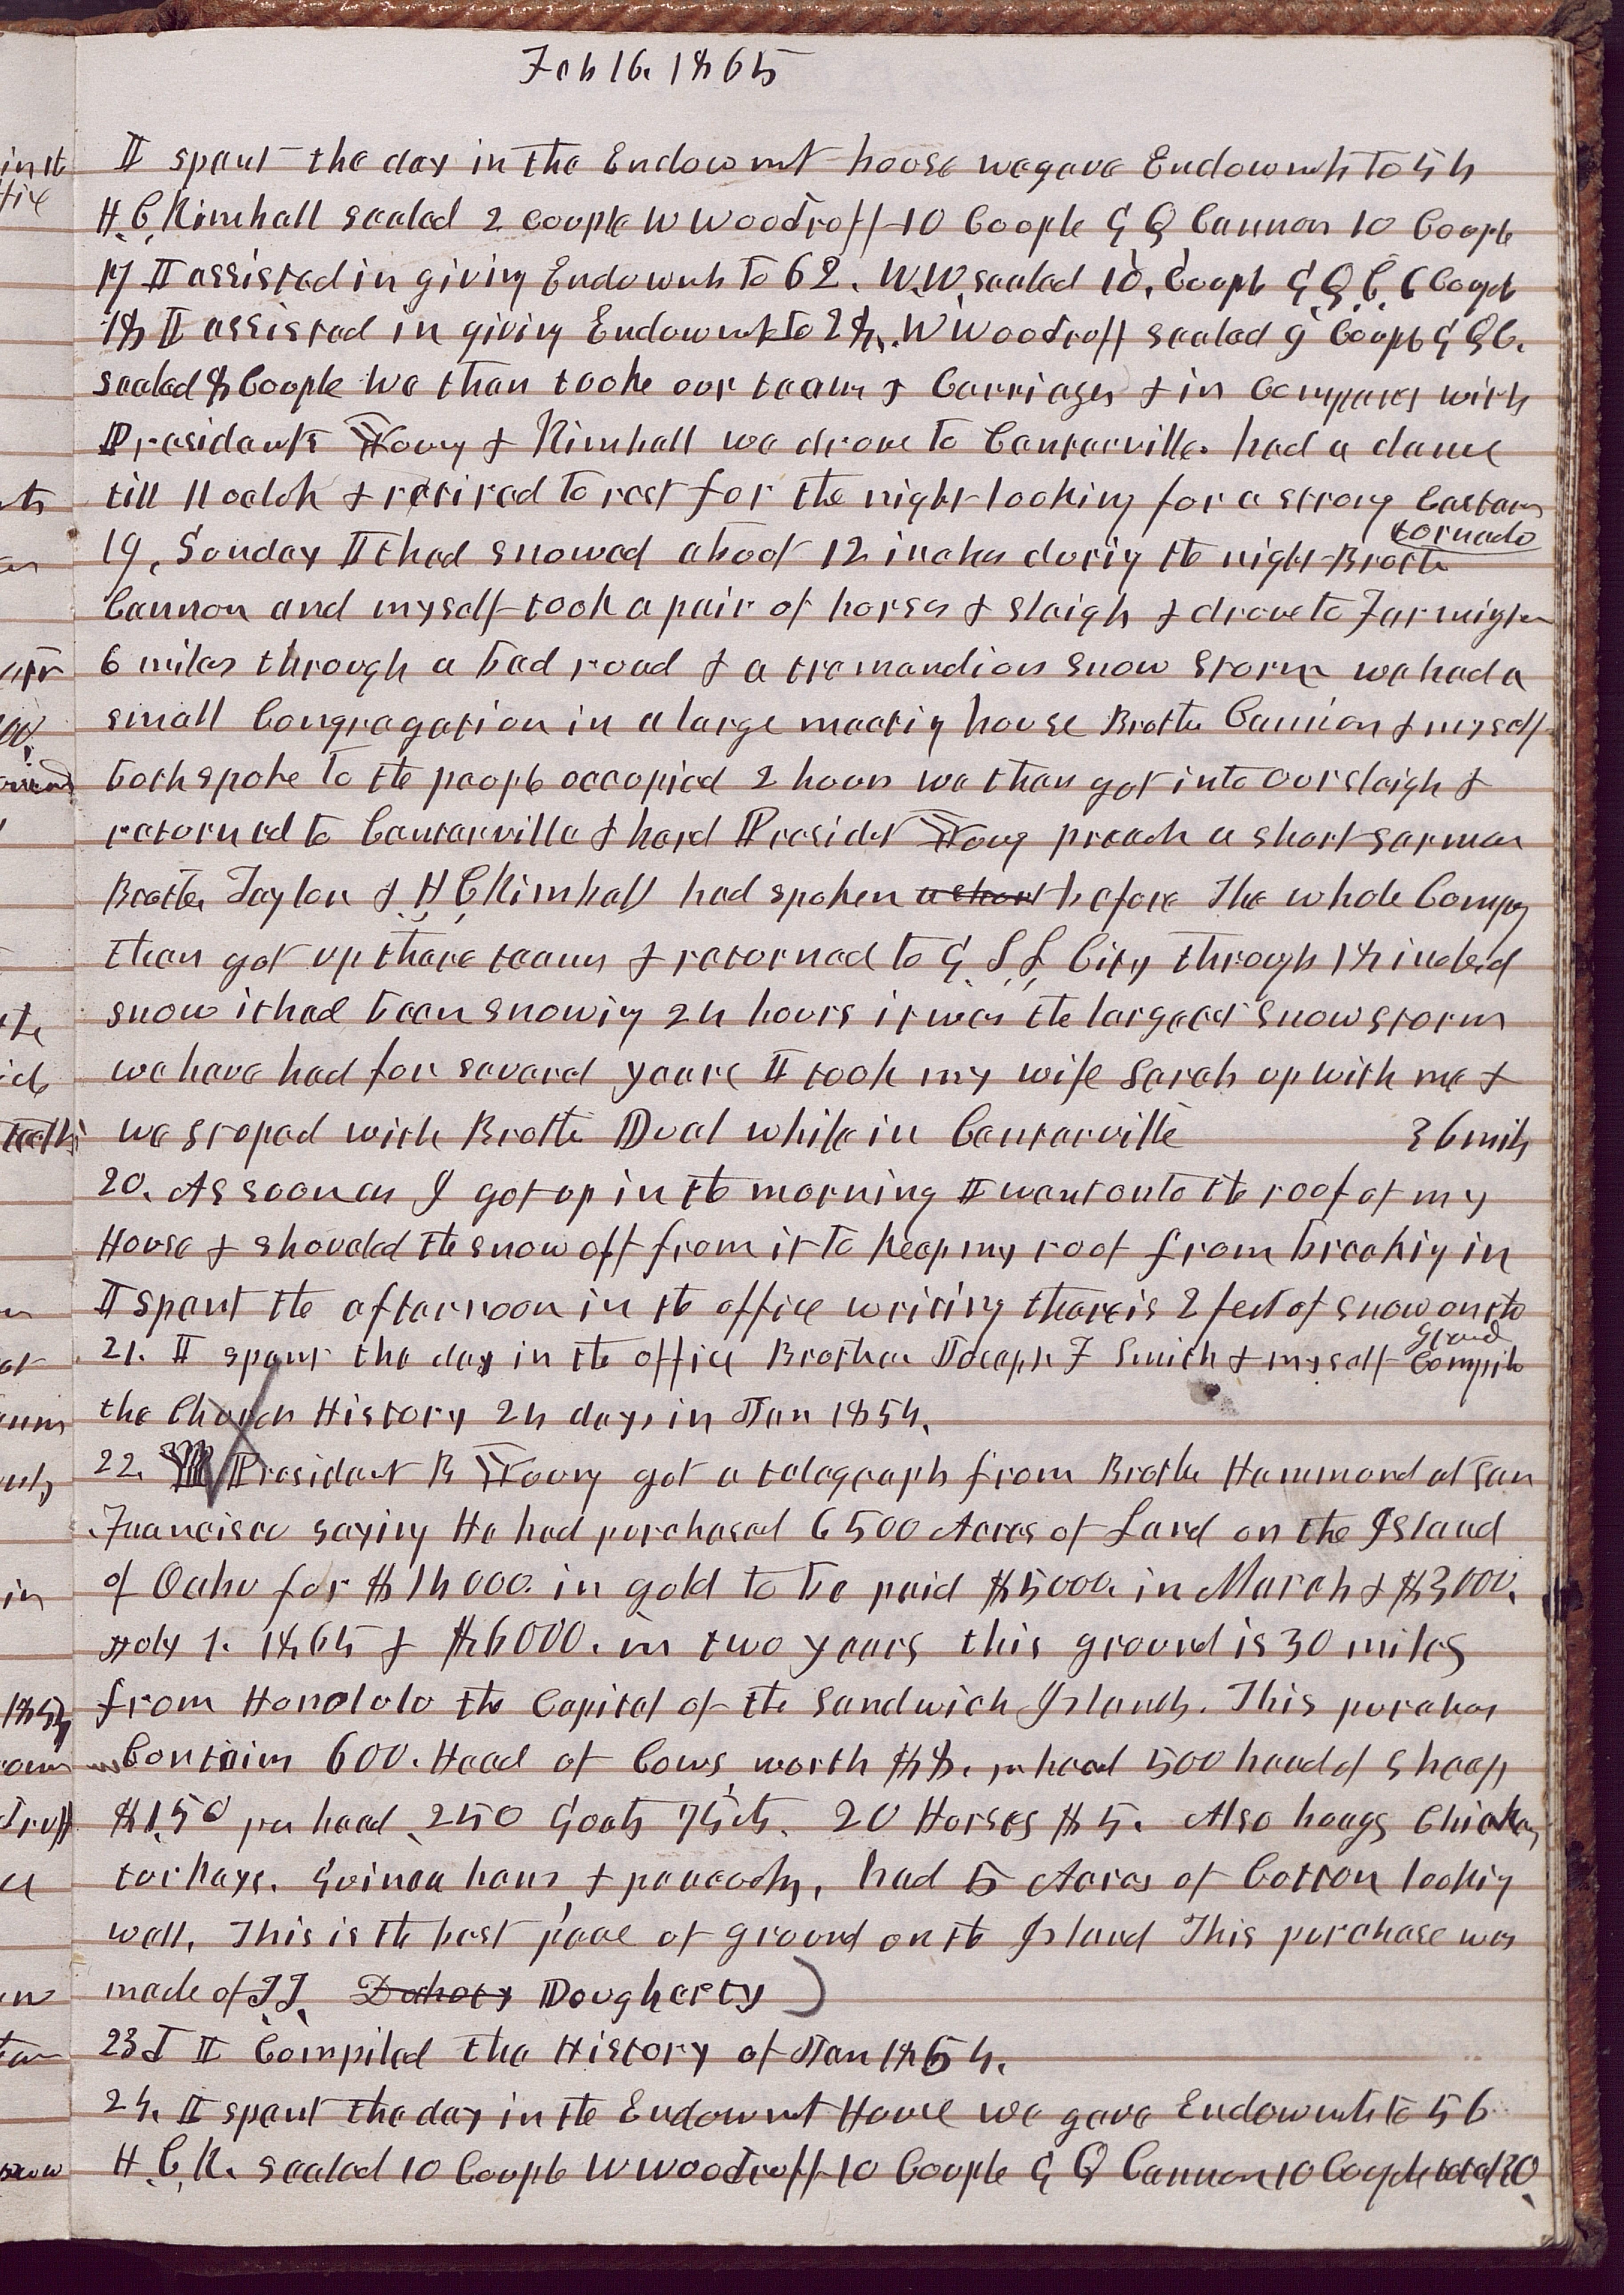 Feb 16. 1865
I spent the day in the Endowmt house we gave Endowmts to 54
H. C. Kimball sealed 2 couple W Woodruff 10 Couple G Q Cannon 10 Couple
17 I assisted in giving Endowmts to 62. W. W. sealed 10. Coupl G Q C. 6 Coupl
18 I assisted in giving Endowmts to 28,. W Woodruff sealed 9 Coupl G Q C.
sealed 8 Couple We then tooke our teams & Carriages & in Company with
Presidents Young & Kimball we drove to Centerville. had a dance
till 11 oclok & retired to rest for the night looking for a strong Eastern
tornado
19, Sunday It had snowed about 12 inches during the night Brother
Cannon and myself took a pair of horses & sleigh & drove to Farmington
6 miles through a bad road & a tremendious snow storm we had a
small Congregation in a large meeting house Brother Cannion & myself
both spoke to the people occupied 2 hours we then got into our sleigh &
returned to Centerville & hard Presidet Young preach a short sermon
Brother Taylor & H C Kimball had spoken a short before The whole Compny
then got up there teams & returned to G. S. L. City through 18 inches of
snow it had been snowing 24 hours it was the largest snow storm
we have had for several years I took my wife Sarah up with me &
we stoped with Brother Duel while in Centerville 36 mils
20. As soon as I got up in the morning I went onto the roof of my
House & shoveled the snow off from it to keep my roof from breaking in
I spent the afternoon in the office writing there is 2 feet of snow on the
ground
21. I spent the day in the office Brother Joseph F Smith & myself Compile
the Church History 24 days in Jan 1854.
22. President B Young got a telegraph from Brother Hammond at San
Francisco saying He had purchased 6500 Acres of Land on the Island
of Oahu for $14000. in gold to be paid $5000. in March & $3000.
July 1. 1865 & $6000. in two years this ground is 30 miles
from Honolulo the Capital of the Sandwich Islands. This purchas
Contains 600. Head of Cows worth $8. pr head 500 head of Sheep
$1.50 per head, 250 Goats 75cts. 20 Horses $5. Also hoggs Chickens
turkays. Guinea hens & peacocks, had 5 Acres of Cotton looking
well, This is the best peace of ground on the Island This purchase was
made of J J. Dohoty Dougherty)
23d I Compiled the History of Jan 1854.
24. I spent the day in the Endowmt House we gave Endowmts to 56
H. C. K. sealed 10 Couple W Woodruff 10 Couple G Q Cannon 10 Couple total 30